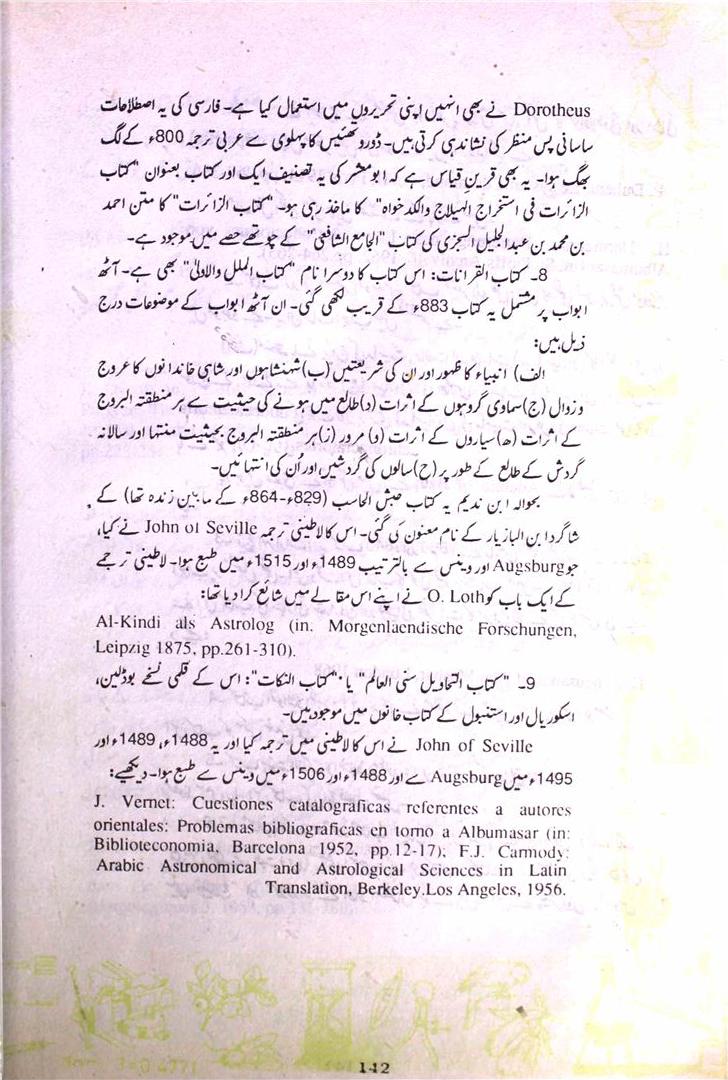 Dorotheus نے بھی انہیں اپنی تحریروں میں استعمال کیا ہے۔ فارسی کی یہ اصطلاحات
ساسانی پس منظر کی نشاندہی کرتی ہیں۔ ڈوروتھئیس کا پہلوی سے عربی ترجمہ 800ء کے لگ
بھگ ہوا۔ یہ بھی قرین قیاس ہے کہ ابو معشر کی یہ تصنیف ایک اور کتاب بعنوان "کتاب
الزائرات فی استخراج الہیلاج والکدخواہ" کا ماخذ رہی ہو۔ "کتاب الزائرات" کا متن احمد
بن محمد بن عبدالجلیل السجزی کی کتاب "الجامع الشافعی" کے چوتھے حصے میں موجود ہے۔
8۔ کتاب القرانات: اس کتاب کا دوسرا نام "کتاب الملل والاولیٰ" بھی ہے۔ آٹھ
ابواب پر مشتمل یہ کتاب 883ء کے قریب لکھی گئی۔ ان آٹھ ابواب کے موضوعات درج
ذیل ہیں:
(الف) انبیاء کا ظہور اور ان کی شریعتیں (ب) شہنشاہوں اور شاہی خاندانوں کا عروج
و زوال (ج) سماوی گروہوں کے اثرات (د) طالع میں ہونے کی حیثیت سے ہر منطقتہ البروج
کے اثرات (ھ) سیاروں کے اثرات (و) مرور (ز) ہر منطقتہ البروج بحیثیت منتہا اور سالانہ
گردش کے طالع کے طور پر (ح) سالوں کی گردشیں اور اُن کی انتہائیں۔
بحوالہ ابن ندیم یہ کتاب حبش الحاسب (829ء-864ء کے مابین زندہ تھا) کے
شاگرد ابن البازیار کے نام معنون کی گئی۔ اس کا لاطینی ترجمہ John of Seville نے کیا،
جو Augsburg اور وینس سے بالترتیب 1489ء اور 1515ء میں طبع ہوا۔ لاطینی ترجمے
کے ایک باب کو O. Loth نے اپنے اس مقالے میں شائع کرا دیا تھا:
Al-Kindi als Astrolog (in. Morgenlaendische Forschungen,
Leipzig 1875, pp.261-310).
9۔ "کتاب التحاویل سنی العالم" یا "کتاب النکات": اس کے قلمی نسخے بوڈلین،
اسکوریال اور استنبول کے کتاب خانوں میں موجود ہیں۔
John of Seville نے اس کا لاطینی میں ترجمہ کیا اور یہ 1488ء، 1489ء اور
1495ء میں Augsburg سے اور 1488ء اور 1506ء میں وینس سے طبع ہوا۔ دیکھیے:
J. Vernet: Cuestiones catalograficas referentes a autores
orientales: Problemas bibliograficas en torno a Albumasar (in:
Biblioteconomia, Barcelona 1952, pp.12-17); F.J. Carmody:
Arabic Astronomical and Astrological Sciences in Latin
Translation, Berkeley.Los Angeles, 1956.
142